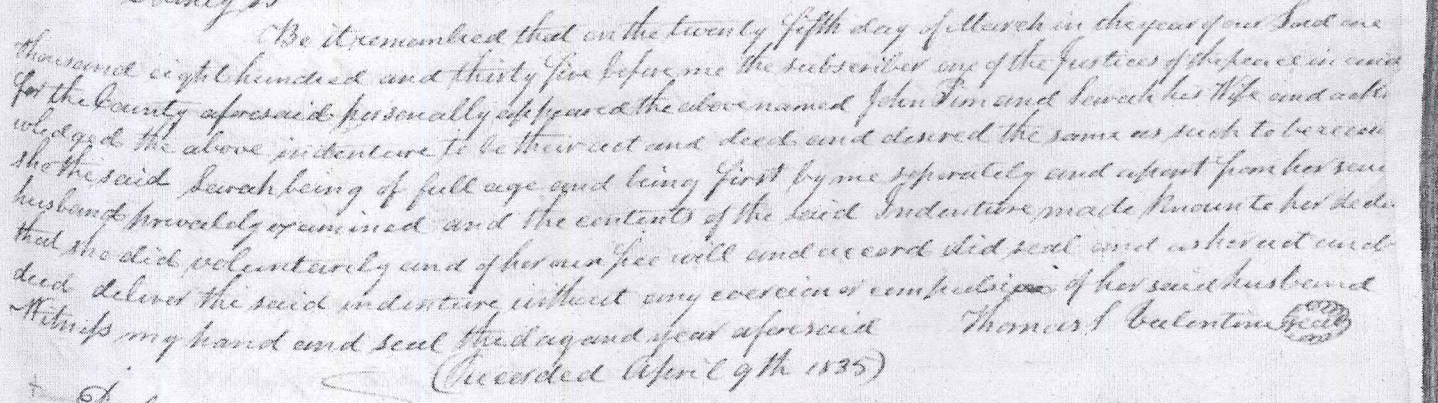 Be it remembred that on the twenty fifth day of March in the year of our Lord one
thousand eight hundred and thirty five before me the subscriber one of the Justices of the peace in and
for the County aforesaid personally appeared the above named John Pim and Sarah his Wife and ack
wledged the above indenture to be their act and deed and desired the same as such to be recor
she the said Sarah being of full age and being first by me seperately and apart from her said
husband privately examined and the contents of the said Indenture made known to her decla
that she did voluntarily and of her own free will and accord did seal and as her act and
deed deliver the said indenture without any coercion or compulsion of her said husband
Witness my hand and seal the day and year aforesaid Thomas S Valentine seal
(Recorded April 9th 1835)